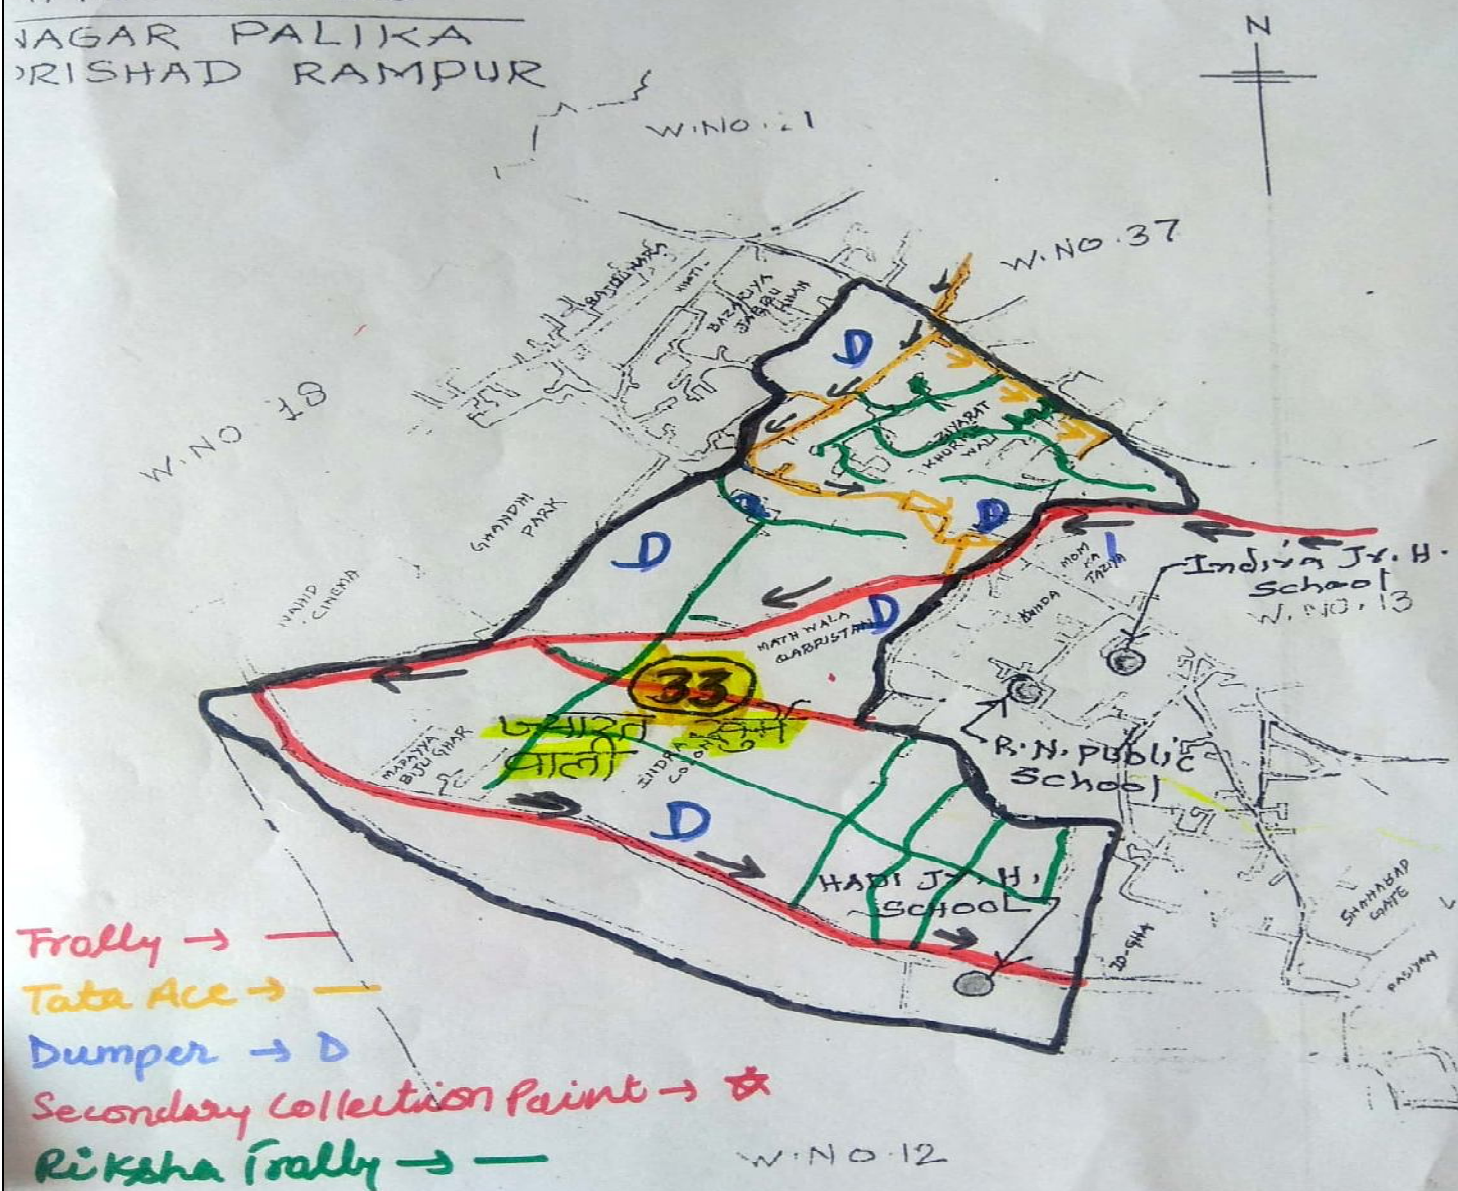 NAGAR PALIKA
PRISHAD RAMPUR
N
W.NO. 21
W.NO. 37
W.NO 18
BAZARIYA
JABBU
KHAN
D
ZIYARAT
KHURME
WALI
GHANDHI
PARK
D
D
NAHID
CINEMA
MOM
KA
TAZIYA
KUNDA
Indira Jr. H.
School
W.NO.13
MATH WALA
QABRISTAN
D
33
ज्यारत खुर्मे
वाली
MADAYYA
BIJLI GHAR
INDRA
COLONY
R.N. Public
School
D
HADI Jr. H.
SCHOOL
SHAHABAD
GATE
ID-GHA
PASIYAN
Trally → —
Tata Ace → —
Dumper → D
Secondary Collection Point → ☆
Riksha Trally → —
W.NO.12